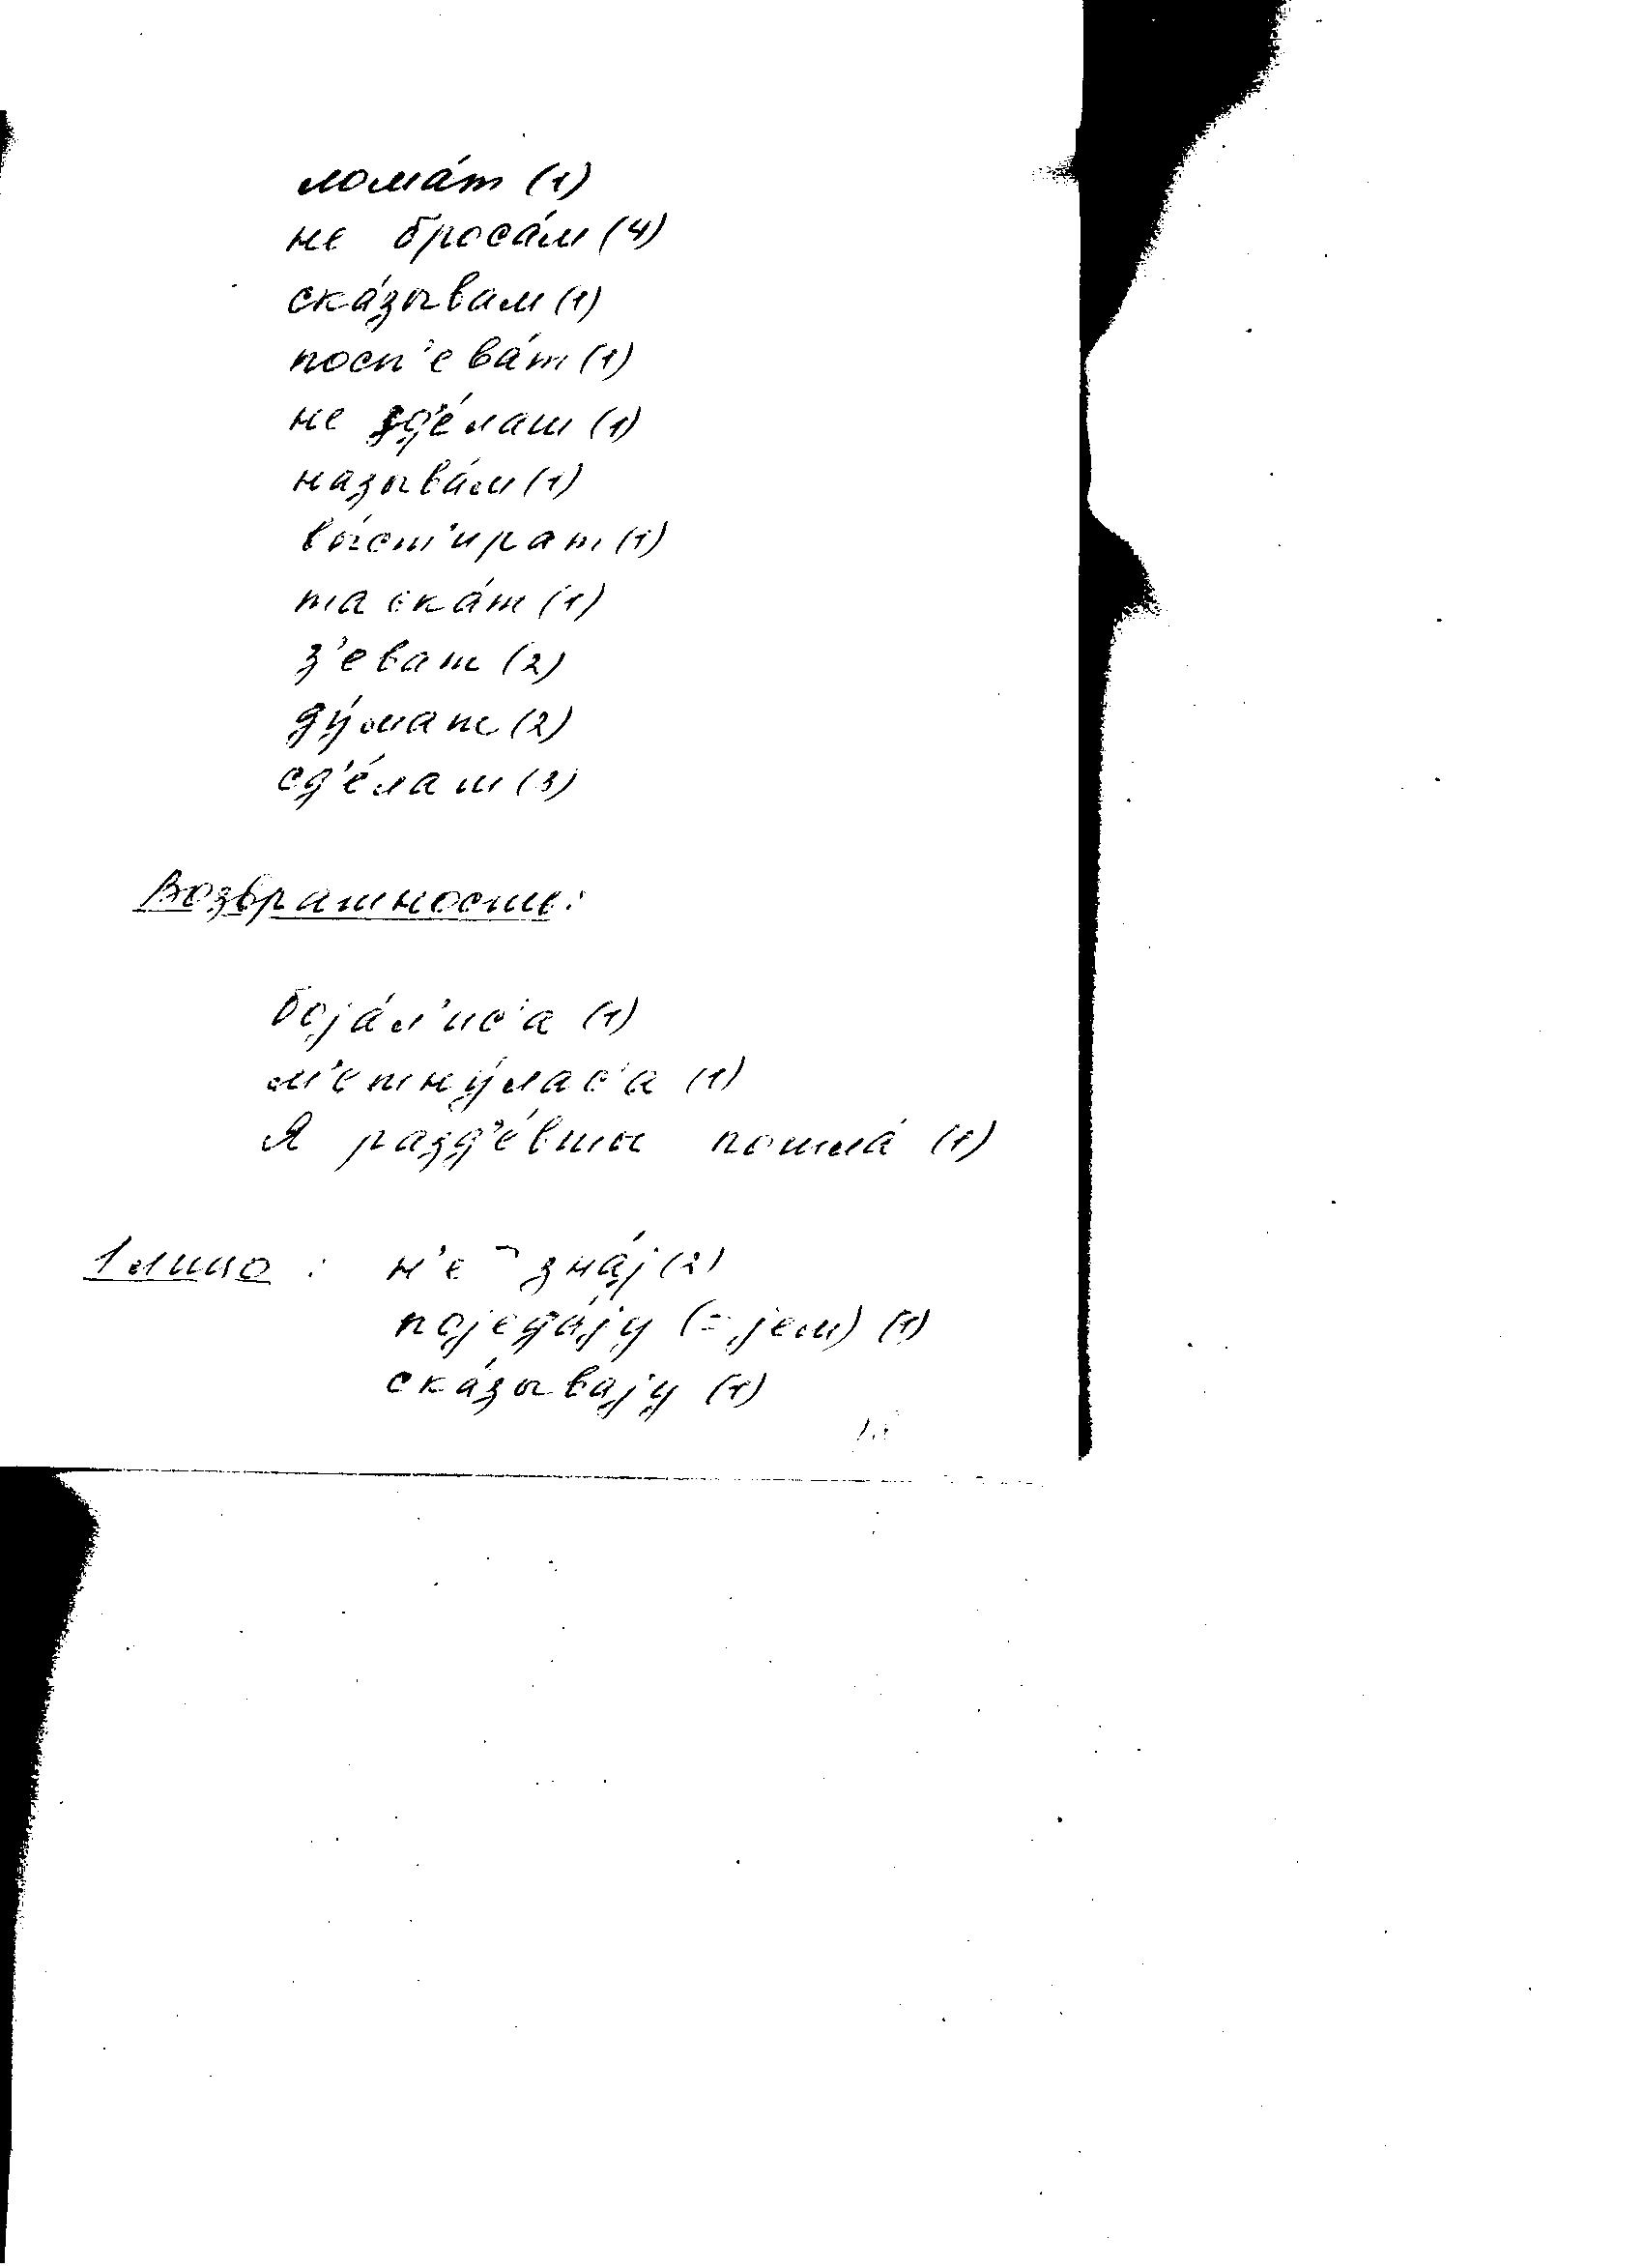 лома́т (1)
не броса́м (4)
ска́зывам (1)
посп'ева́т (1)
не зд'е́лаш (1)
называ́м (1)
вы́ст'ират (1)
таска́т (1)
з'еват (2)
ду́мат (2)
сд'е́лаш (3)
Возвратность:
боја́л'ис'а (1)
м'етну́лас'а (1)
Я разд'е́вшы пошла́ (1)
1 лицо : н'е ¬ зна́ј (2)
поједа́ју (= јем) (1)
ска́зывају (1)